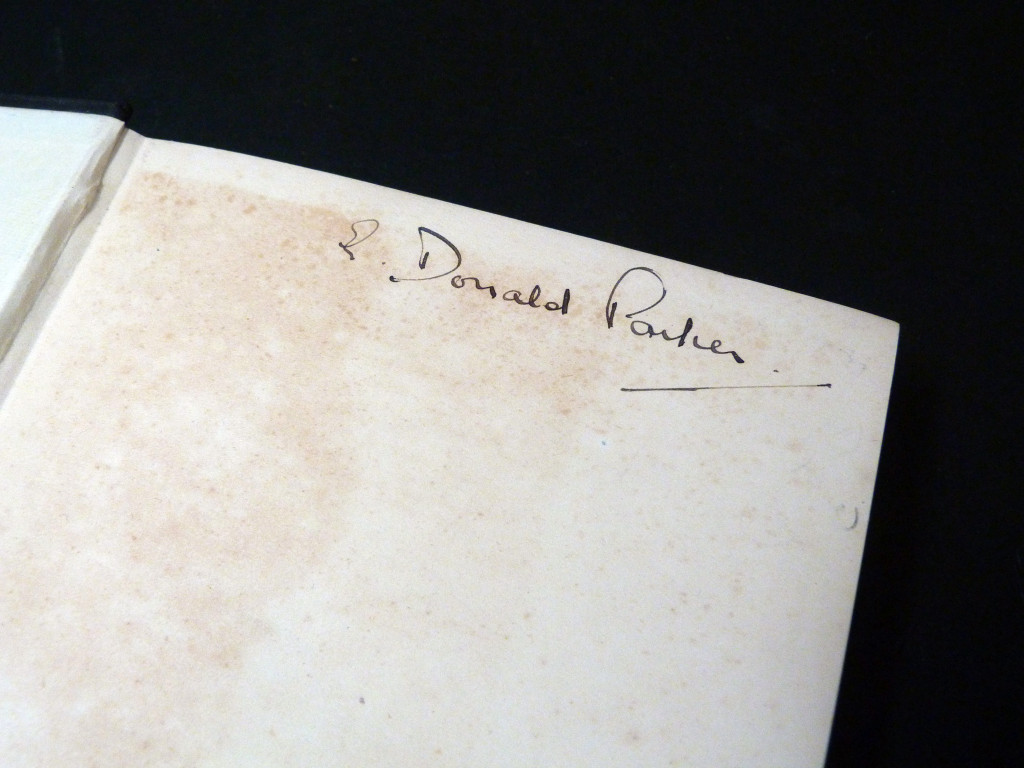 E. Donald Parker.